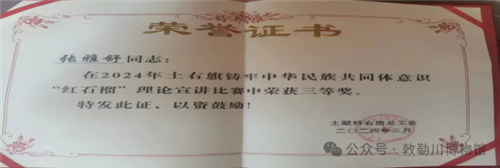 荣誉证书
张雅舒同志：
在2024年土右旗铸牢中华民族共同体意识
“红石榴”理论宣讲比赛中荣获三等奖。
特发此证，以资鼓励！
土默特右旗总工会
二〇二四年三月
公众号·敕勒川博物馆